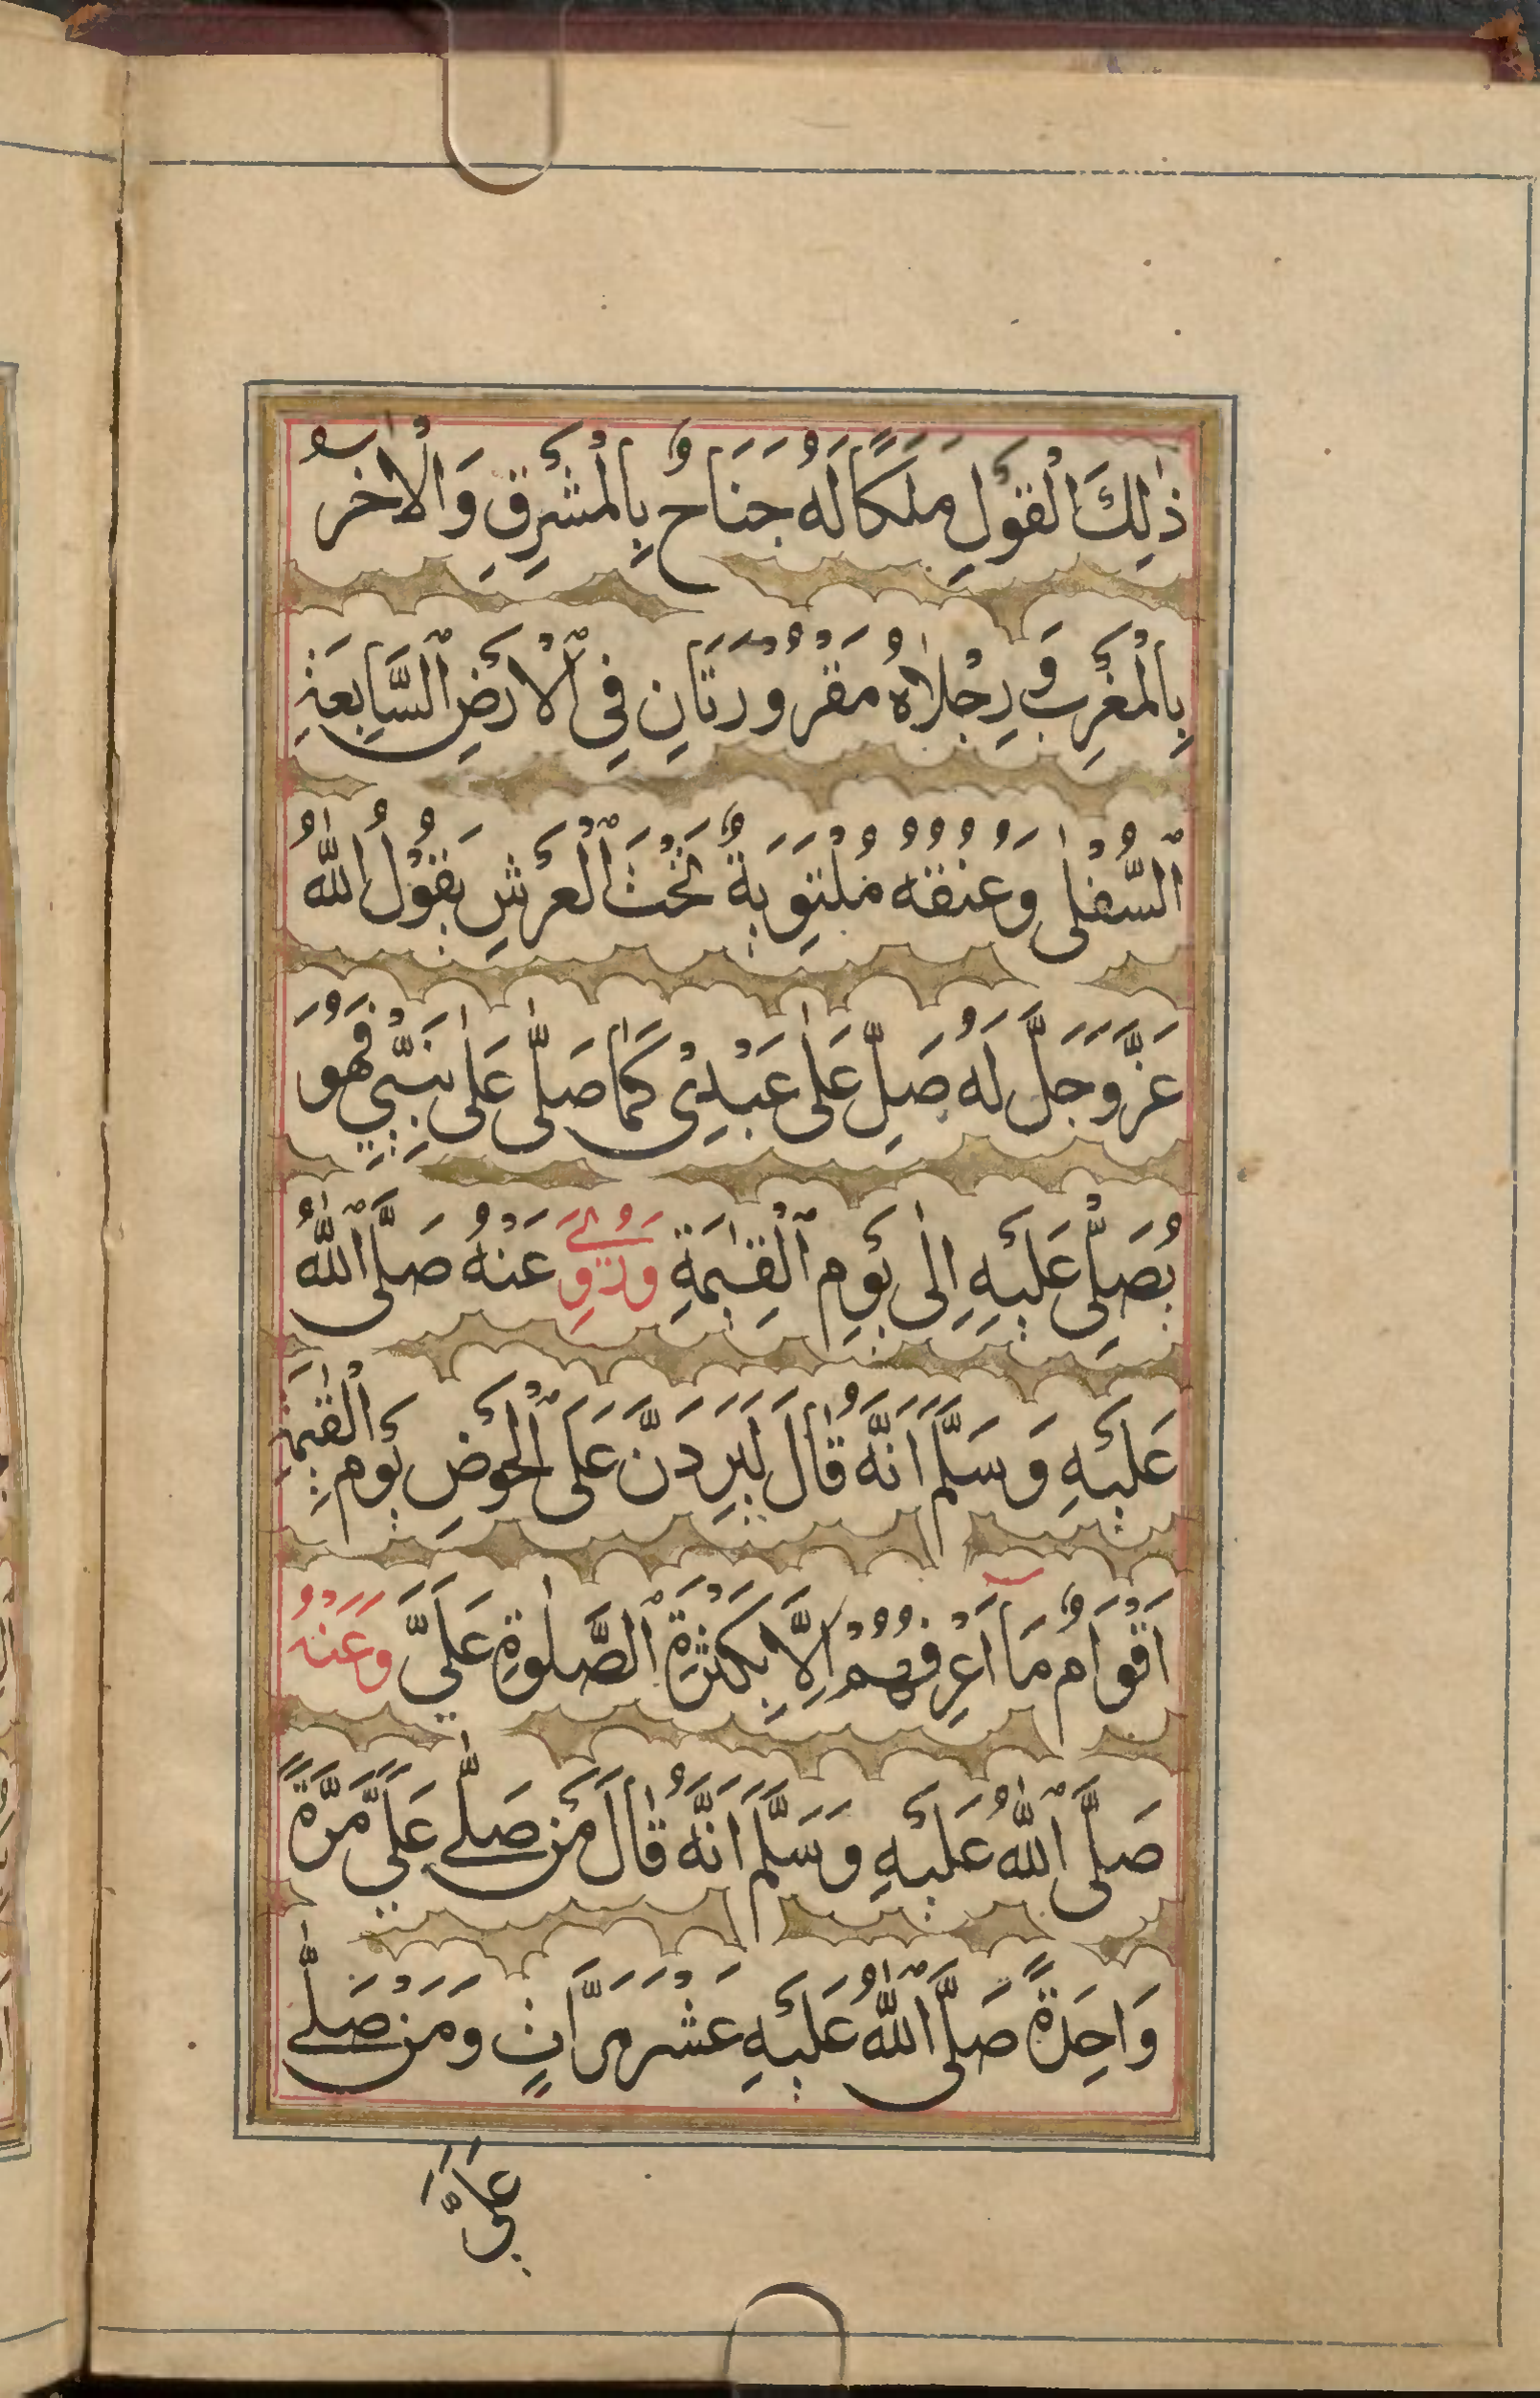 ذٰلِكَ الْقَوْلِ مَلَكًا لَهُ جَنَاحٌ بِالْمَشْرِقِ وَالْاٰخَرُ
بِالْمَغْرِبِ وَرِجْلَاهُ مَقْرُوْرَتَانِ فِي الْاَرْضِ السَّابِعَةِ
السُّفْلٰى وَعُنُقُهُ مُلْتَوِيَةٌ تَحْتَ الْعَرْشِ يَقُوْلُ اللّٰهُ
عَزَّ وَجَلَّ لَهُ صَلِّ عَلٰى عَبْدِيْ كَمَا صَلّٰى عَلٰى نَبِيِّيْ فَهُوَ
يُصَلِّيْ عَلَيْهِ اِلٰى يَوْمِ الْقِيٰمَةِ وَرُوِيَ عَنْهُ صَلَّى اللّٰهُ
عَلَيْهِ وَسَلَّمَ اَنَّهُ قَالَ لَيَرِدَنَّ عَلَى الْحَوْضِ يَوْمَ الْقِيٰمَةِ
اَقْوَامٌ مَا اَعْرِفُهُمْ اِلَّا بِكَثْرَةِ الصَّلٰوةِ عَلَيَّ وَعَنْهُ
صَلَّى اللّٰهُ عَلَيْهِ وَسَلَّمَ اَنَّهُ قَالَ مَنْ صَلّٰى عَلَيَّ مَرَّةً
وَاحِدَةً صَلَّى اللّٰهُ عَلَيْهِ عَشْرَ مَرَّاتٍ وَمَنْ صَلّٰى
عَلَيَّ